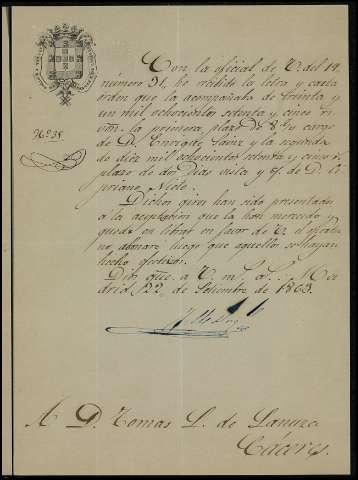 Con la oficial de V. del 19
número 31, he recibido la letra y carta
órden que la acompañaba de treinta y
un mil ochocientos setenta y cinco r.
von. la primera, plazo de 8 d/v cargo
de D. Enrique Sainz y la segunda
de diez mil ochocientos setenta y cinco á
plazo de dos dias vista y c/ de D. Ci
priano Nieto.
Nº 35.
Dichos giros han sido presentados
á la aceptacion que la han merecido y
quedo en librar en favor de V. el
abonaré luego que aquellos se hayan
hecho efectivos.
Dios gue. a V. m. a. Ma
drid 22 de Setiembre de 1863.
A D. Tomas L. de Lanuza
Cáceres.